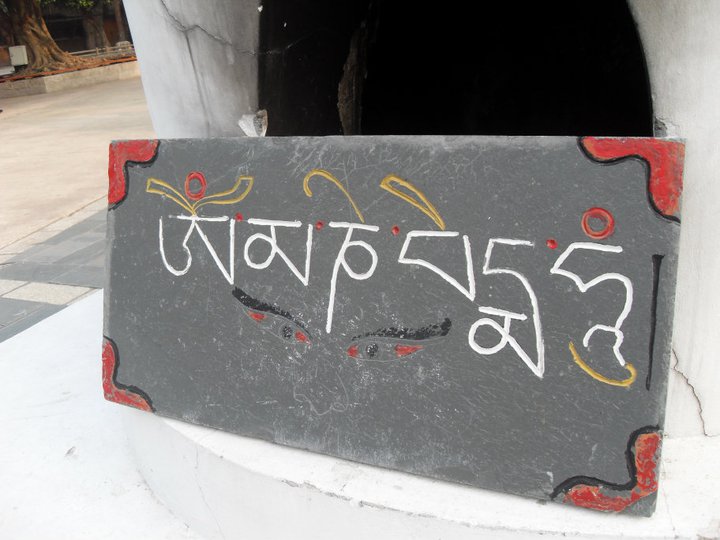 ༀ་མ་ཎི་པེ་དྨ་ཧཱུྃ།